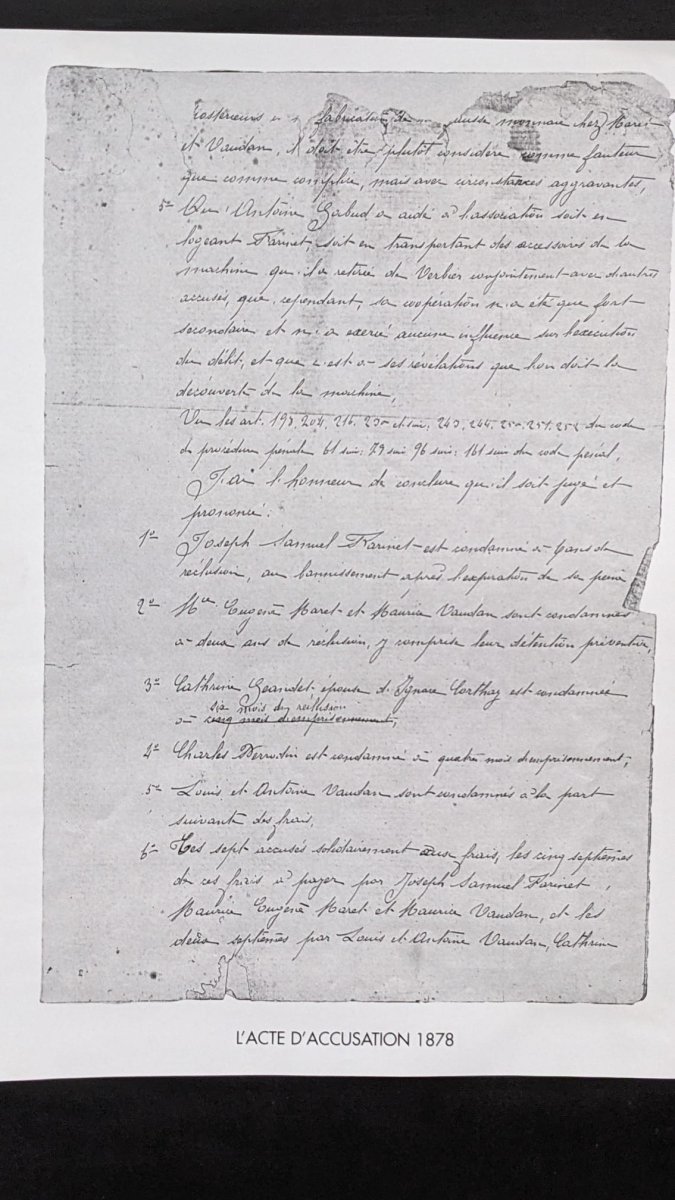 postérieurs à la fabrication de la fausse monnaie chez Maret
et Vaudan, il doit être plutôt considéré comme fauteur
que comme complice, mais avec circonstances aggravantes,
5° Qu'Antoine Gabud a aidé à l'association soit en
logeant Farinet, soit en transportant des accessoires de la
machine qu'il a retirée de Verbier conjointement avec d'autres
accusés, que, cependant, sa coopération n'a été que fort
secondaire et n'a exercé aucune influence sur l'exécution
du délit, et que c'est à ses révélations que l'on doit la
découverte de la machine,
Vu les art. 193, 204, 216, et suiv. 243, 244, 251, 252 du code
de procédure pénale 61 suiv. 79 suiv 96 suiv. 161 suiv du code pénal,
J'ai l'honneur de conclure qu'il soit jugé et
prononcé:
1° Joseph Samuel Farinet est condamné à 6 ans de
réclusion, au bannissement après l'expiration de sa peine
2° Mce Eugène Maret et Maurice Vaudan sont condamnés
à deux ans de réclusion, y comprise leur détention préventive,
3° Cathrine Geandet épouse d'Ignace Corthay est condamnée
six mois de réclusion
à cinq mois d'emprisonnement,
4° Charles est condamné à quatre mois d'emprisonnement;
5° Louis et Antoine Vaudan sont condamnés à la part
suivante des frais,
6° Les sept accusés solidairement aux frais, les cinq septièmes
de ces frais à payer par Joseph Samuel Farinet,
Maurice Eugène Maret et Maurice Vaudan, et les
deux septièmes par Louis et Antoine Vaudan, Cathrine
L'ACTE D'ACCUSATION 1878